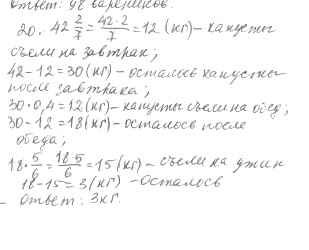 Ответ: 48 вареников.
20. 42 2/7 = 42·2/7 = 12 (кг) – капусты
съели на завтрак;
42 – 12 = 30 (кг) – осталось капусты
после завтрака;
30 · 0,4 = 12 (кг) – капусты съели на обед;
30 – 12 = 18 (кг) – осталось после
обеда;
18 · 5/6 = 18·5/6 = 15 (кг) – съели на ужин
18 – 15 = 3 (кг) – осталось
Ответ: 3 кг.